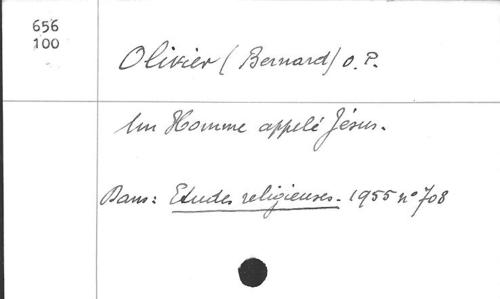 656
100
Olivier (Bernard) O.P.
Un Homme appelé Jésus.
Dans: Etudes religieuses. 1955 n° 708